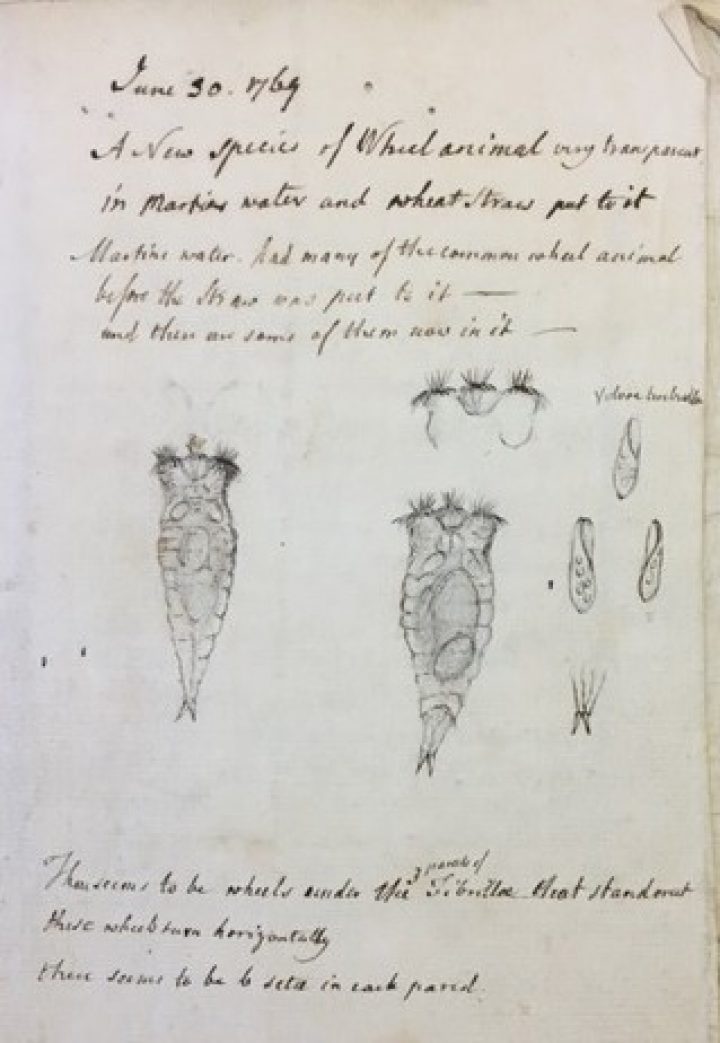 June 30. 1769
A New species of Wheel animal very transparent
in Martins water and wheat Straw put to it
Martins water. had many of the common wheel animal
before the Straw was put to it —
and there are some of them now in it —
There seems to be wheels under the 3 parcels of Fibrillæ that stand out
these wheels turn horizontally
there seems to be 6 setæ in each parcel.